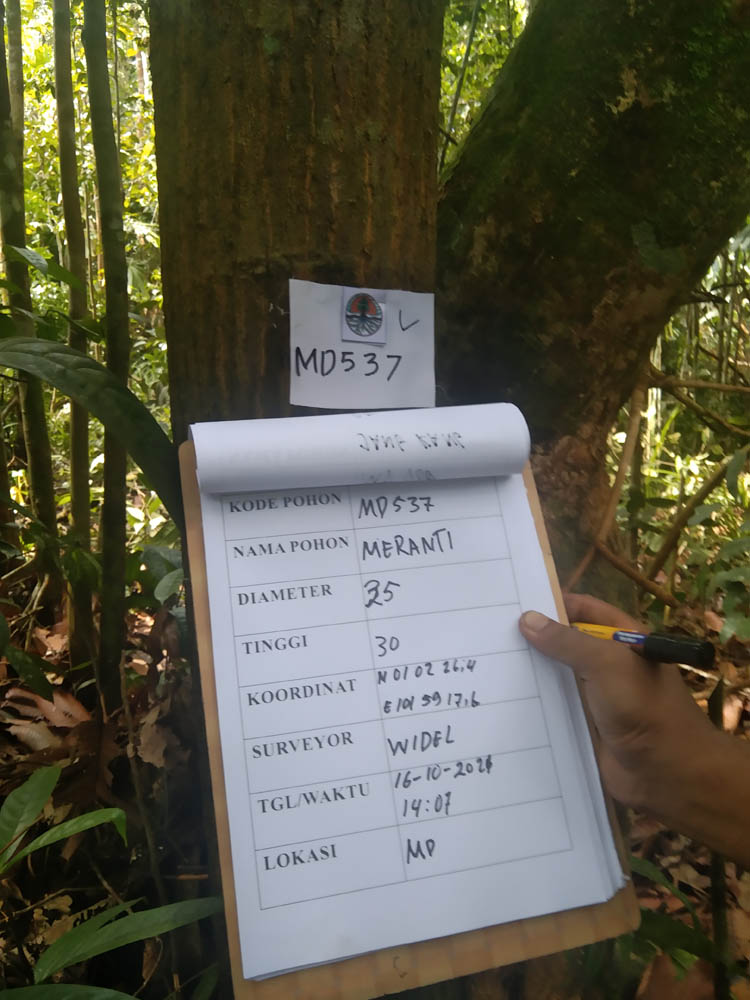 MD537
KODE POHON MD537
NAMA POHON MERANTI
DIAMETER 35
TINGGI 30
KOORDINAT N 01 02 26,4
E 101 59 17,6
SURVEYOR WIDEL
TGL/WAKTU 16-10-2021
14:07
LOKASI MD